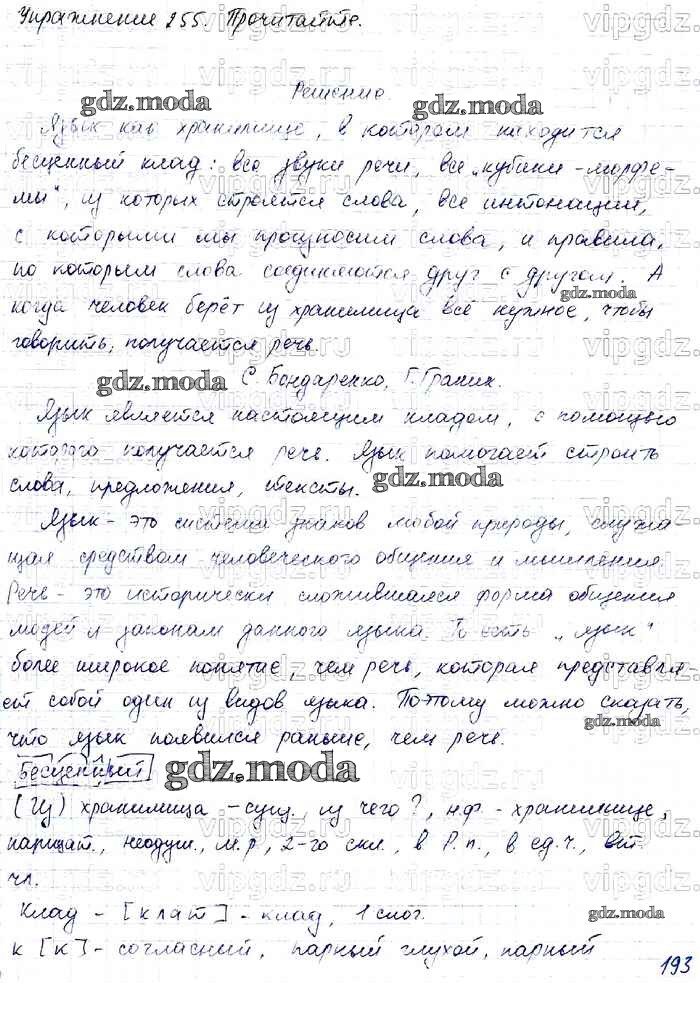 Упражнение 255. Прочитайте.
Решение
gdz.moda
gdz.moda
Язык как хранилище, в котором находится
бесценный клад: все звуки речи, все „кубики-морфе-
мы“, из которых строятся слова, все интонации,
с которыми мы произносим слова, и правила,
по которым слова соединяются друг с другом. А
gdz.moda
когда человек берёт из хранилища всё нужное, чтобы
говорить, получается речь.
gdz.moda
С. Бондаренко, Г. Граник.
Язык является настоящим кладом, с помощью
которого получается речь. Язык помогает строить
слова, предложения, тексты.
gdz.moda
Язык - это система знаков любой природы, служа-
щая средством человеческого общения и мышления.
Речь - это исторически сложившаяся форма общения
людей законам данного языка. То есть „язык“
более широкое понятие, чем речь, которая представля-
ет собой один из видов языка. Поэтому можно сказать,
gdz.moda
что язык появился раньше, чем речь.
бесценный
gdz.moda
(Из) хранилища - сущ., из чего?, н.ф. - хранилище,
нарицат., неодуш., м.р, 2-го скл., в Р.п., в ед.ч., вт.
чл.
Клад - [клат] - клад, 1 слог.
gdz.moda
к [к] - согласный, парный глухой, парный
193
vipgdz.ru